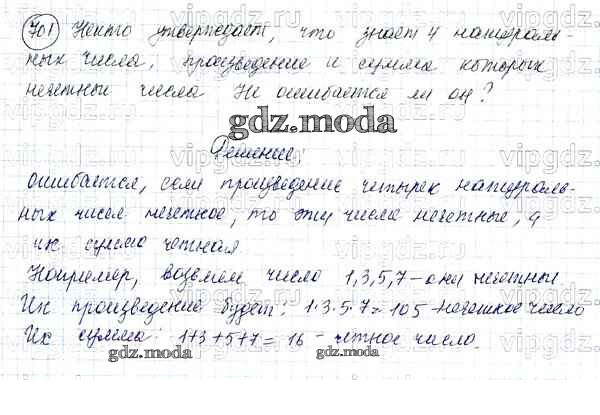 701 Некто утверждает, что знает 4 натураль-
ных числа, произведение и сумма которых
нечетные числа Не ошибается ли он?
gdz.moda
Решение:
ошибается, если произведение четырех натураль-
ных чисел нечетное, то эти числа нечетные, а
их сумма четная.
Например, возьмем число 1,3,5,7 - они нечетные
Их произведение будет: 1·3·5·7=105 - нечетное число
gdz.moda
Их сумма: 1+3+5+7=16 - четное число.
gdz.moda